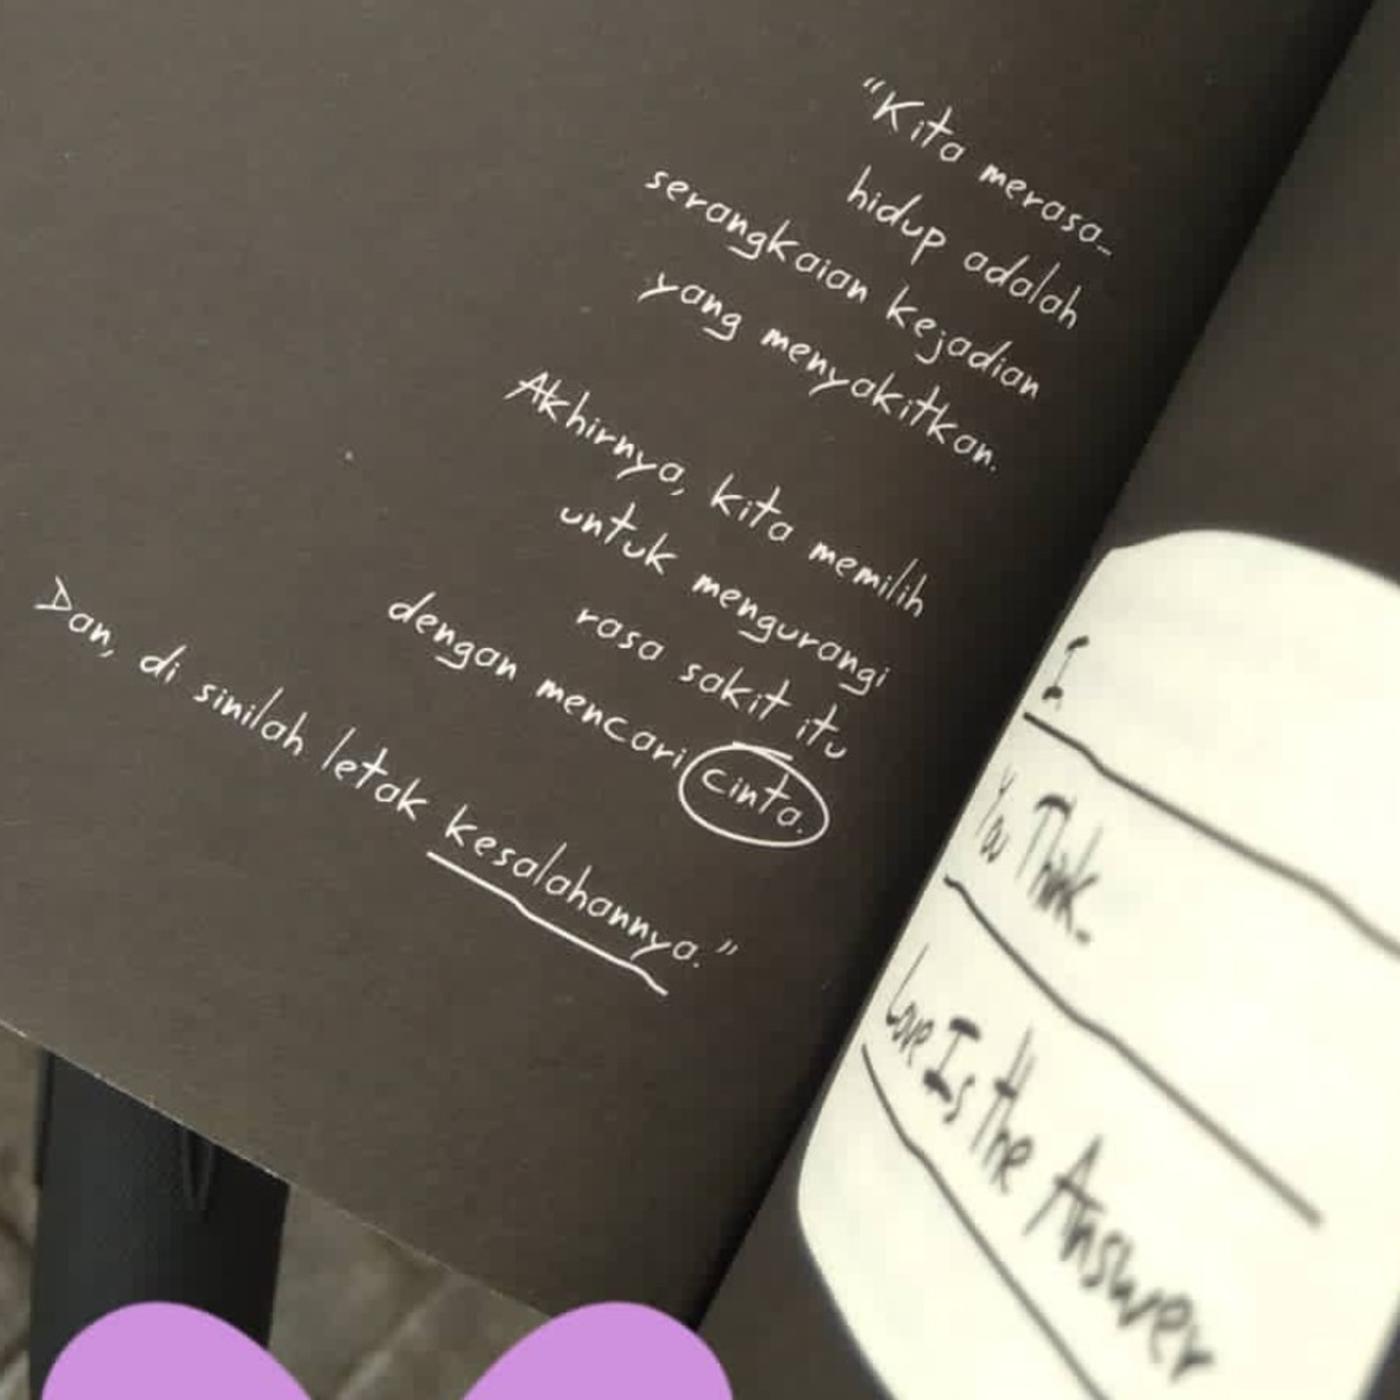 "Kita merasa..
hidup adalah
serangkaian kejadian
yang menyakitkan.
Akhirnya, kita memilih
untuk mengurangi
rasa sakit itu
dengan mencari cinta.
Dan, di sinilah letak kesalahannya."
I
You Think..
Love Is the Answer